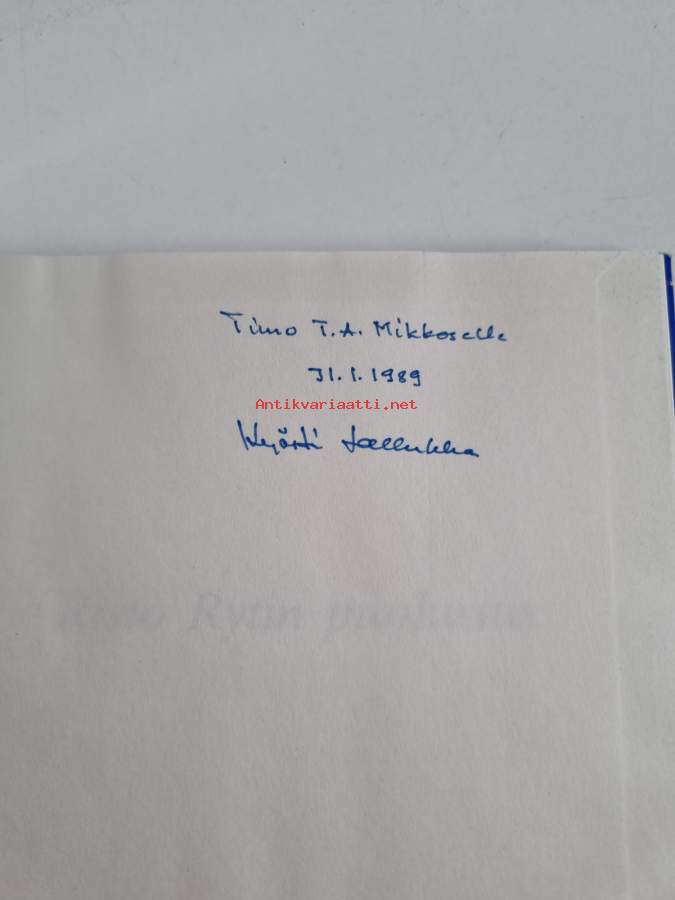 Timo T.A. Mikkoselle
31.1.1989
Antikvariaatti.net
Kyösti Lallukka
Risto Rytin puolustus